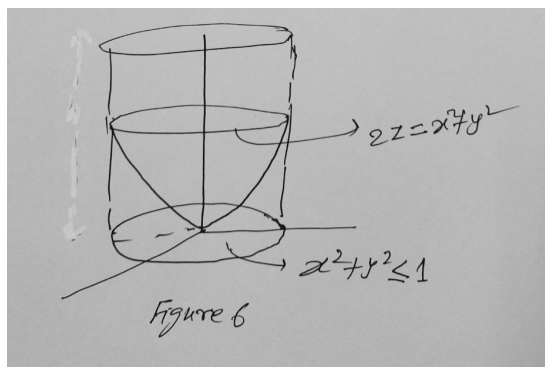 2z=x²+y²
x²+y²≤1
Figure 6